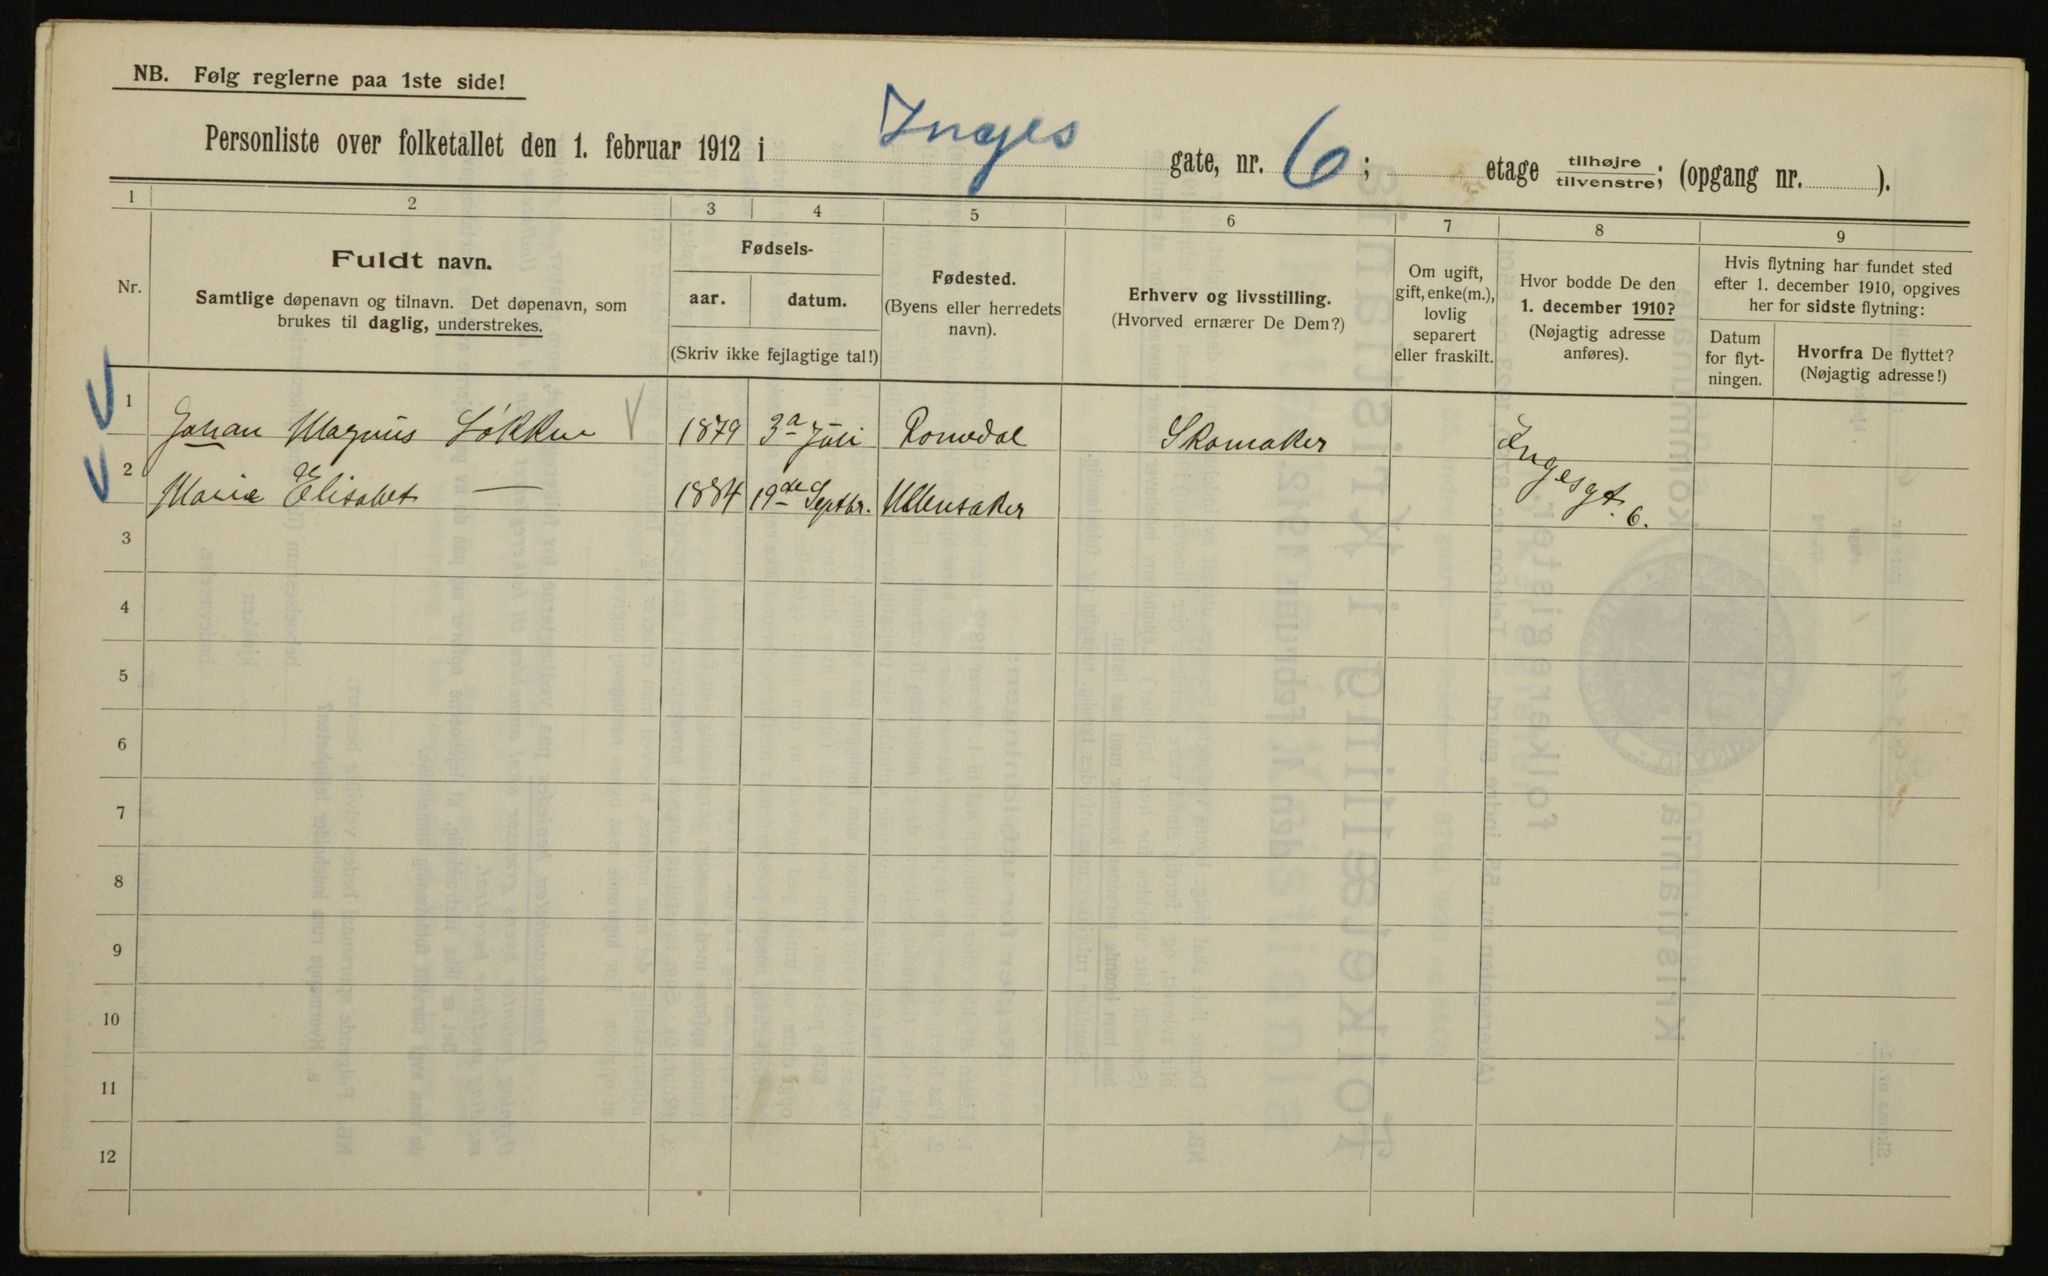 NB. Følg reglerne paa 1ste side!
Personliste over folketallet den 1. februar 1912 i Inges gate, nr. 6; etage tilhøjre/tilvenstre; (opgang nr. ).
1 2 3 4 5 6 7 8 9
Nr.
Fuldt navn.
Samtlige døpenavn og tilnavn. Det døpenavn, som
brukes til daglig, understrekes.
Fødsels-
aar. datum.
(Skriv ikke fejlagtige tal!)
Fødested.
(Byens eller herredets
navn).
Erhverv og livsstilling.
(Hvorved ernærer De Dem?)
Om ugift,
gift, enke(m.),
lovlig
separert
eller fraskilt.
Hvor bodde De den
1. december 1910?
(Nøjagtig adresse
anføres).
Hvis flytning har fundet sted
efter 1. december 1910, opgives
her for sidste flytning:
Datum
for flyt-
ningen.
Hvorfra De flyttet?
(Nøjagtig adresse!)
1 Johan Magnus Løkken 1879 3a Juli Romedal Skomaker Ingesgt. 6.
2 Marie Elisabet — 1884 19de Septbr. Ullensaker
3
4
5
6
7
8
9
10
11
12